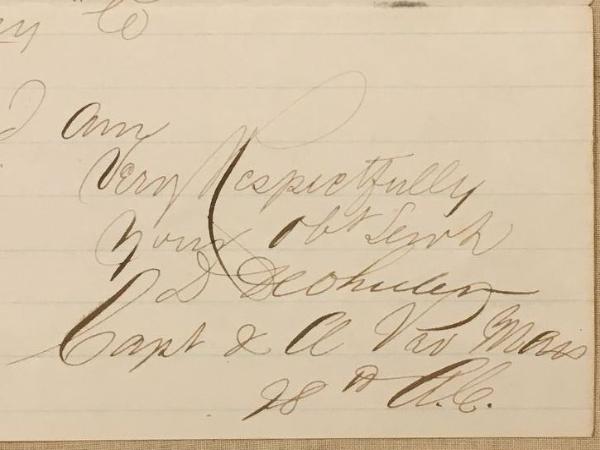 Co
I am
Very Respectfully
Your Obt Servt
D
Capt & A Pro Mars
28th A.C.